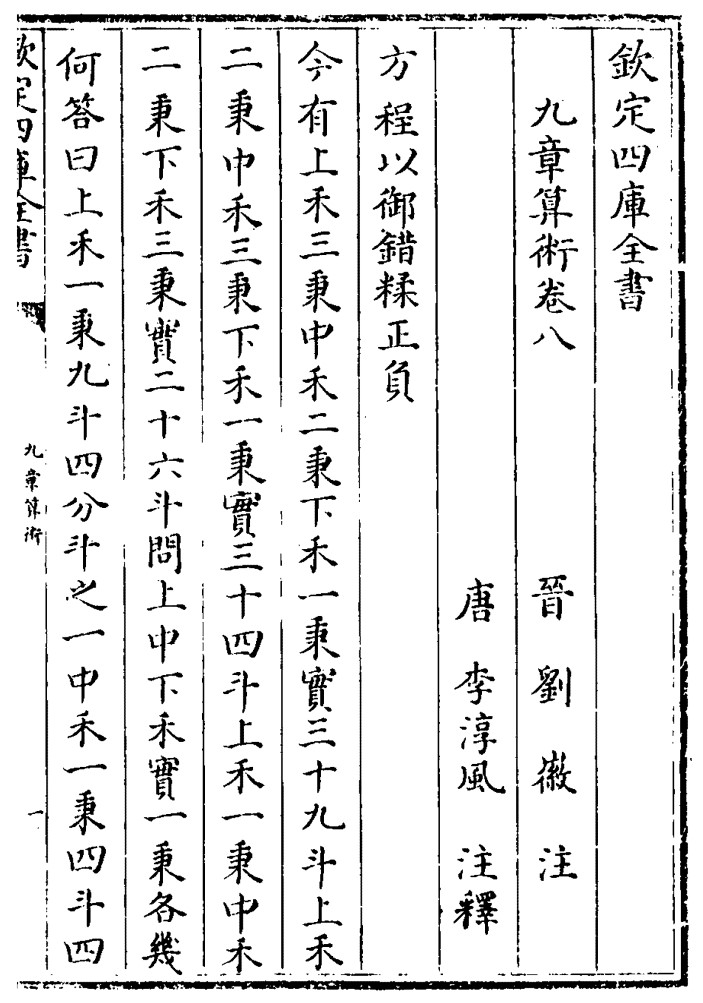 欽定四庫全書
九章算術卷八
晉劉徽注
唐李淳風注釋
方程以御錯糅正負
今有上禾三秉中禾二秉下禾一秉實三十九斗上禾
二秉中禾三秉下禾一秉實三十四斗上禾一秉中禾
二秉下禾三秉實二十六斗問上中下禾實一秉各幾
何答曰上禾一秉九斗四分斗之一中禾一秉四斗四
欽定四庫全書
九章算術
一